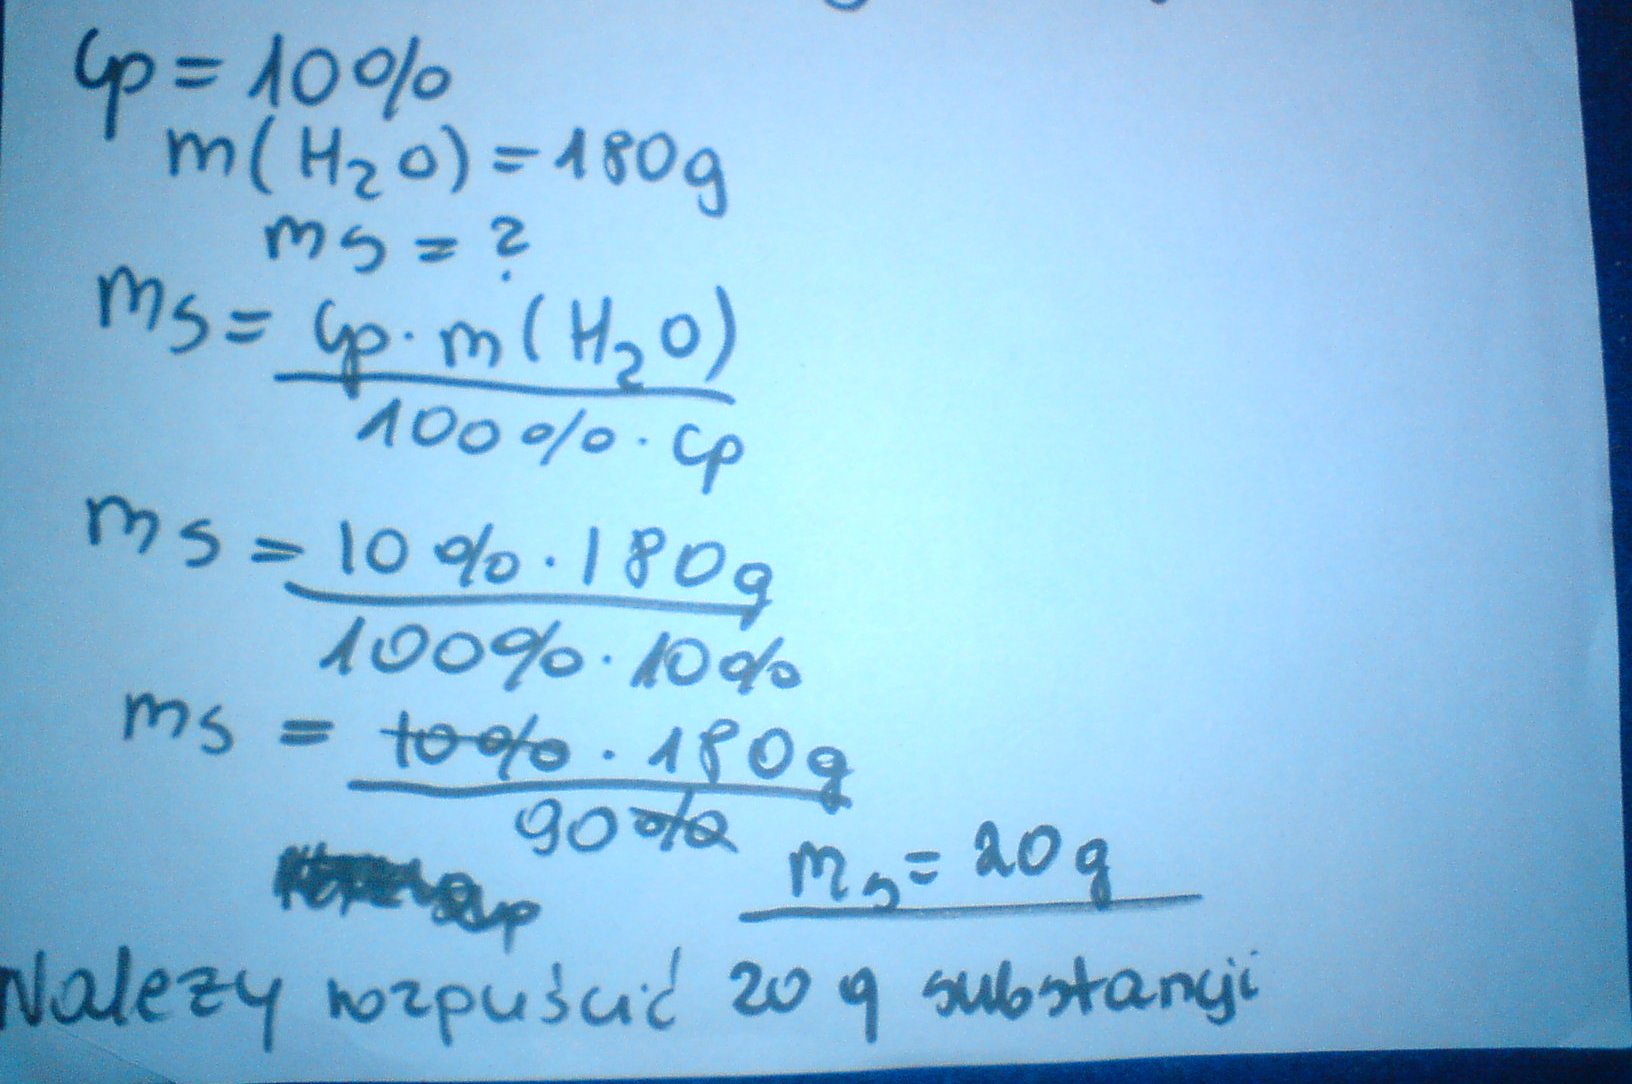 Cp = 10%
m(H2O) = 180g
ms = ?
ms = Cp · m(H2O)
100% · Cp
ms = 10% · 180g
100% · 10%
ms = 10% · 180g
90%
ms = 20g
Nalezy rozpuścić 20 g substancji